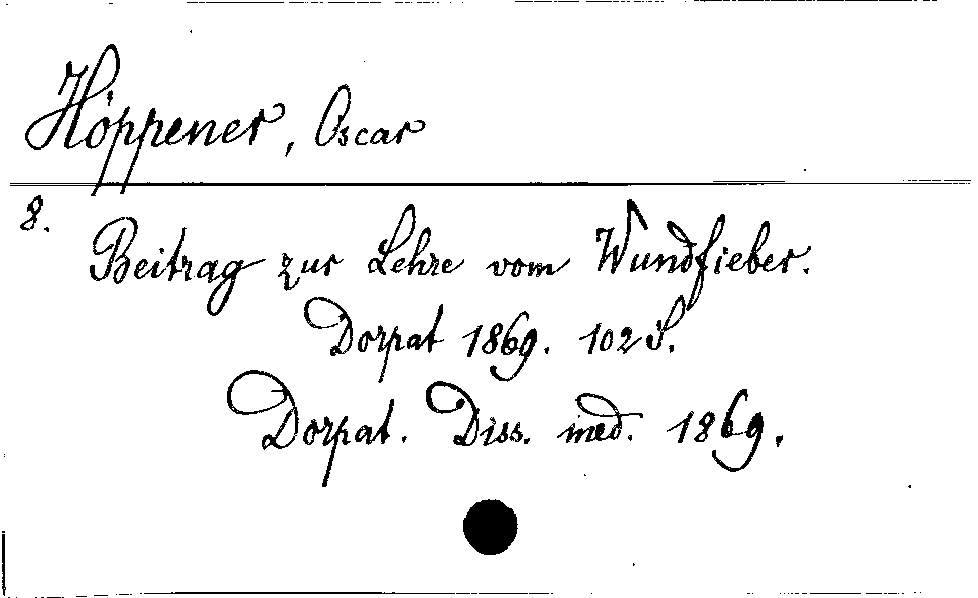 Höppener, Oscar
8.
Beitrag zur Lehre vom Wundfieber.
Dorpat 1869. 102 S.
Dorpat. Diss. med. 1869.